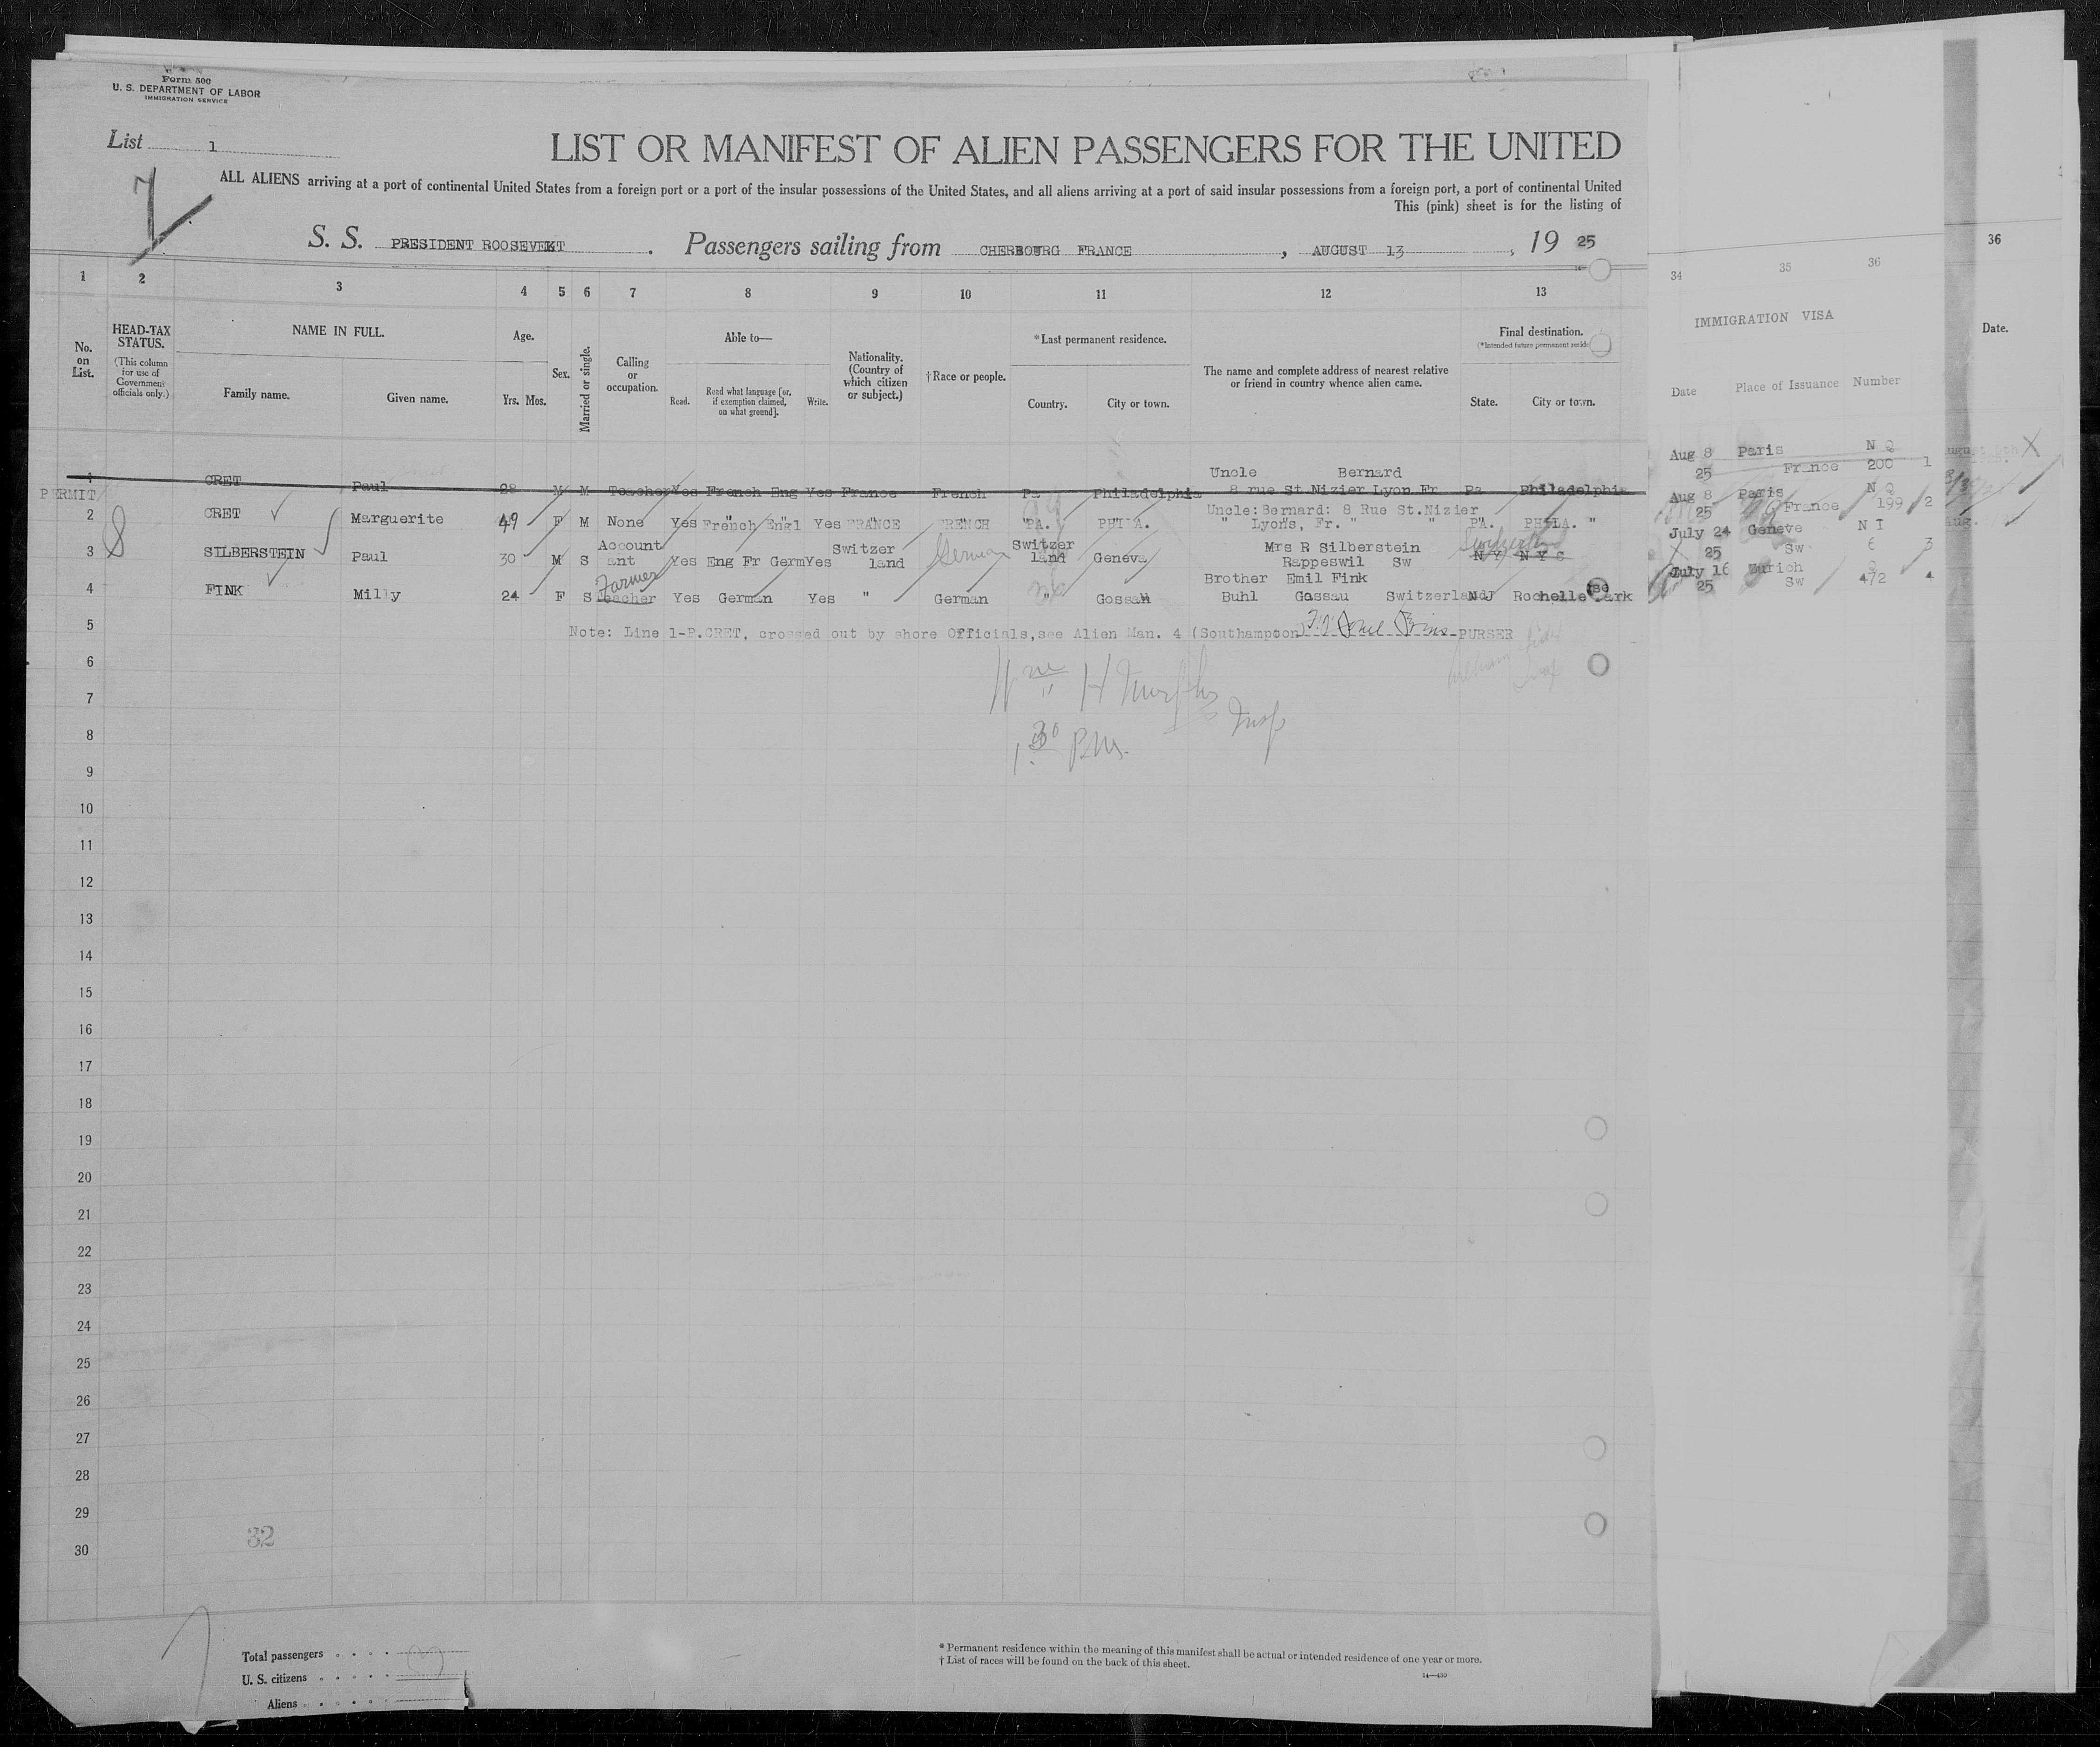 Form 500
U. S. DEPARTMENT OF LABOR
IMMIGRATION SERVICE
List 1
LIST OR MANIFEST OF ALIEN PASSENGERS FOR THE UNITED
ALL ALIENS arriving at a port of continental United States from a foreign port or a port of the insular possessions of the United States, and all aliens arriving at a port of said insular possessions from a foreign port, a port of continental United
This (pink) sheet is for the listing of
S. S. PRESIDENT ROOSEVEKT . Passengers sailing from CHERBOURG FRANCE , AUGUST 13 , 19 25
1 2 3 4 5 6 7 8 9 10 11 12 13 34 35 36 36
No. on List.
HEAD-TAX STATUS.
(This column for use of Government officials only.)
NAME IN FULL.
Family name. Given name.
Age.
Yrs. Mos.
Sex.
Married or single.
Calling or occupation.
Able to—
Read. Read what language [or, if exemption claimed, on what ground]. Write.
Nationality. (Country of which citizen or subject.)
†Race or people.
*Last permanent residence.
Country. City or town.
The name and complete address of nearest relative or friend in country whence alien came.
Final destination.
(*Intended future permanent resid
State. City or town.
IMMIGRATION VISA
Date Place of Issuance Number
Date.
Uncle Bernard Aug 8 Paris N Q
1 CRET Paul 28 M M Teacher Yes French Eng Yes France French Pa Philadelphia 8 rue St Nizier Lyon Fr Pa Philadelphia 25 France 200 1
PERMIT
Uncle: Bernard: 8 Rue St.Nizier Aug 8 Paris N Q
2 CRET Marguerite 49 F M None Yes French Engl Yes FRANCE FRENCH PA. PHILA. " Lyons, Fr. " " PA. PHILA. " 25 France 199 2
Account Switzer Switzer Mrs R Silberstein July 24 Geneve N I
3 SILBERSTEIN Paul 30 M S ant Yes Eng Fr Germ Yes land German land Geneva Rappeswil Sw N Y N Y C 25 Sw 6 3
Farmer Brother Emil Fink July 16 Zurich
4 FINK Milly 24 F S Teacher Yes German Yes " German " Gossau Buhl Gossau Switzerland N J Rochelle Park 25 Sw 472 4
5 Note: Line 1-P.CRET, crossed out by shore Officials, see Alien Man. 4 (Southampton) PURSER
6
Wm H Murphy
7
Insp
8
1.30 P.M.
9
10
11
12
13
14
15
16
17
18
19
20
21
22
23
24
25
26
27
28
29
32
30
Total passengers
U. S. citizens
Aliens
* Permanent residence within the meaning of this manifest shall be actual or intended residence of one year or more.
† List of races will be found on the back of this sheet.
14—430